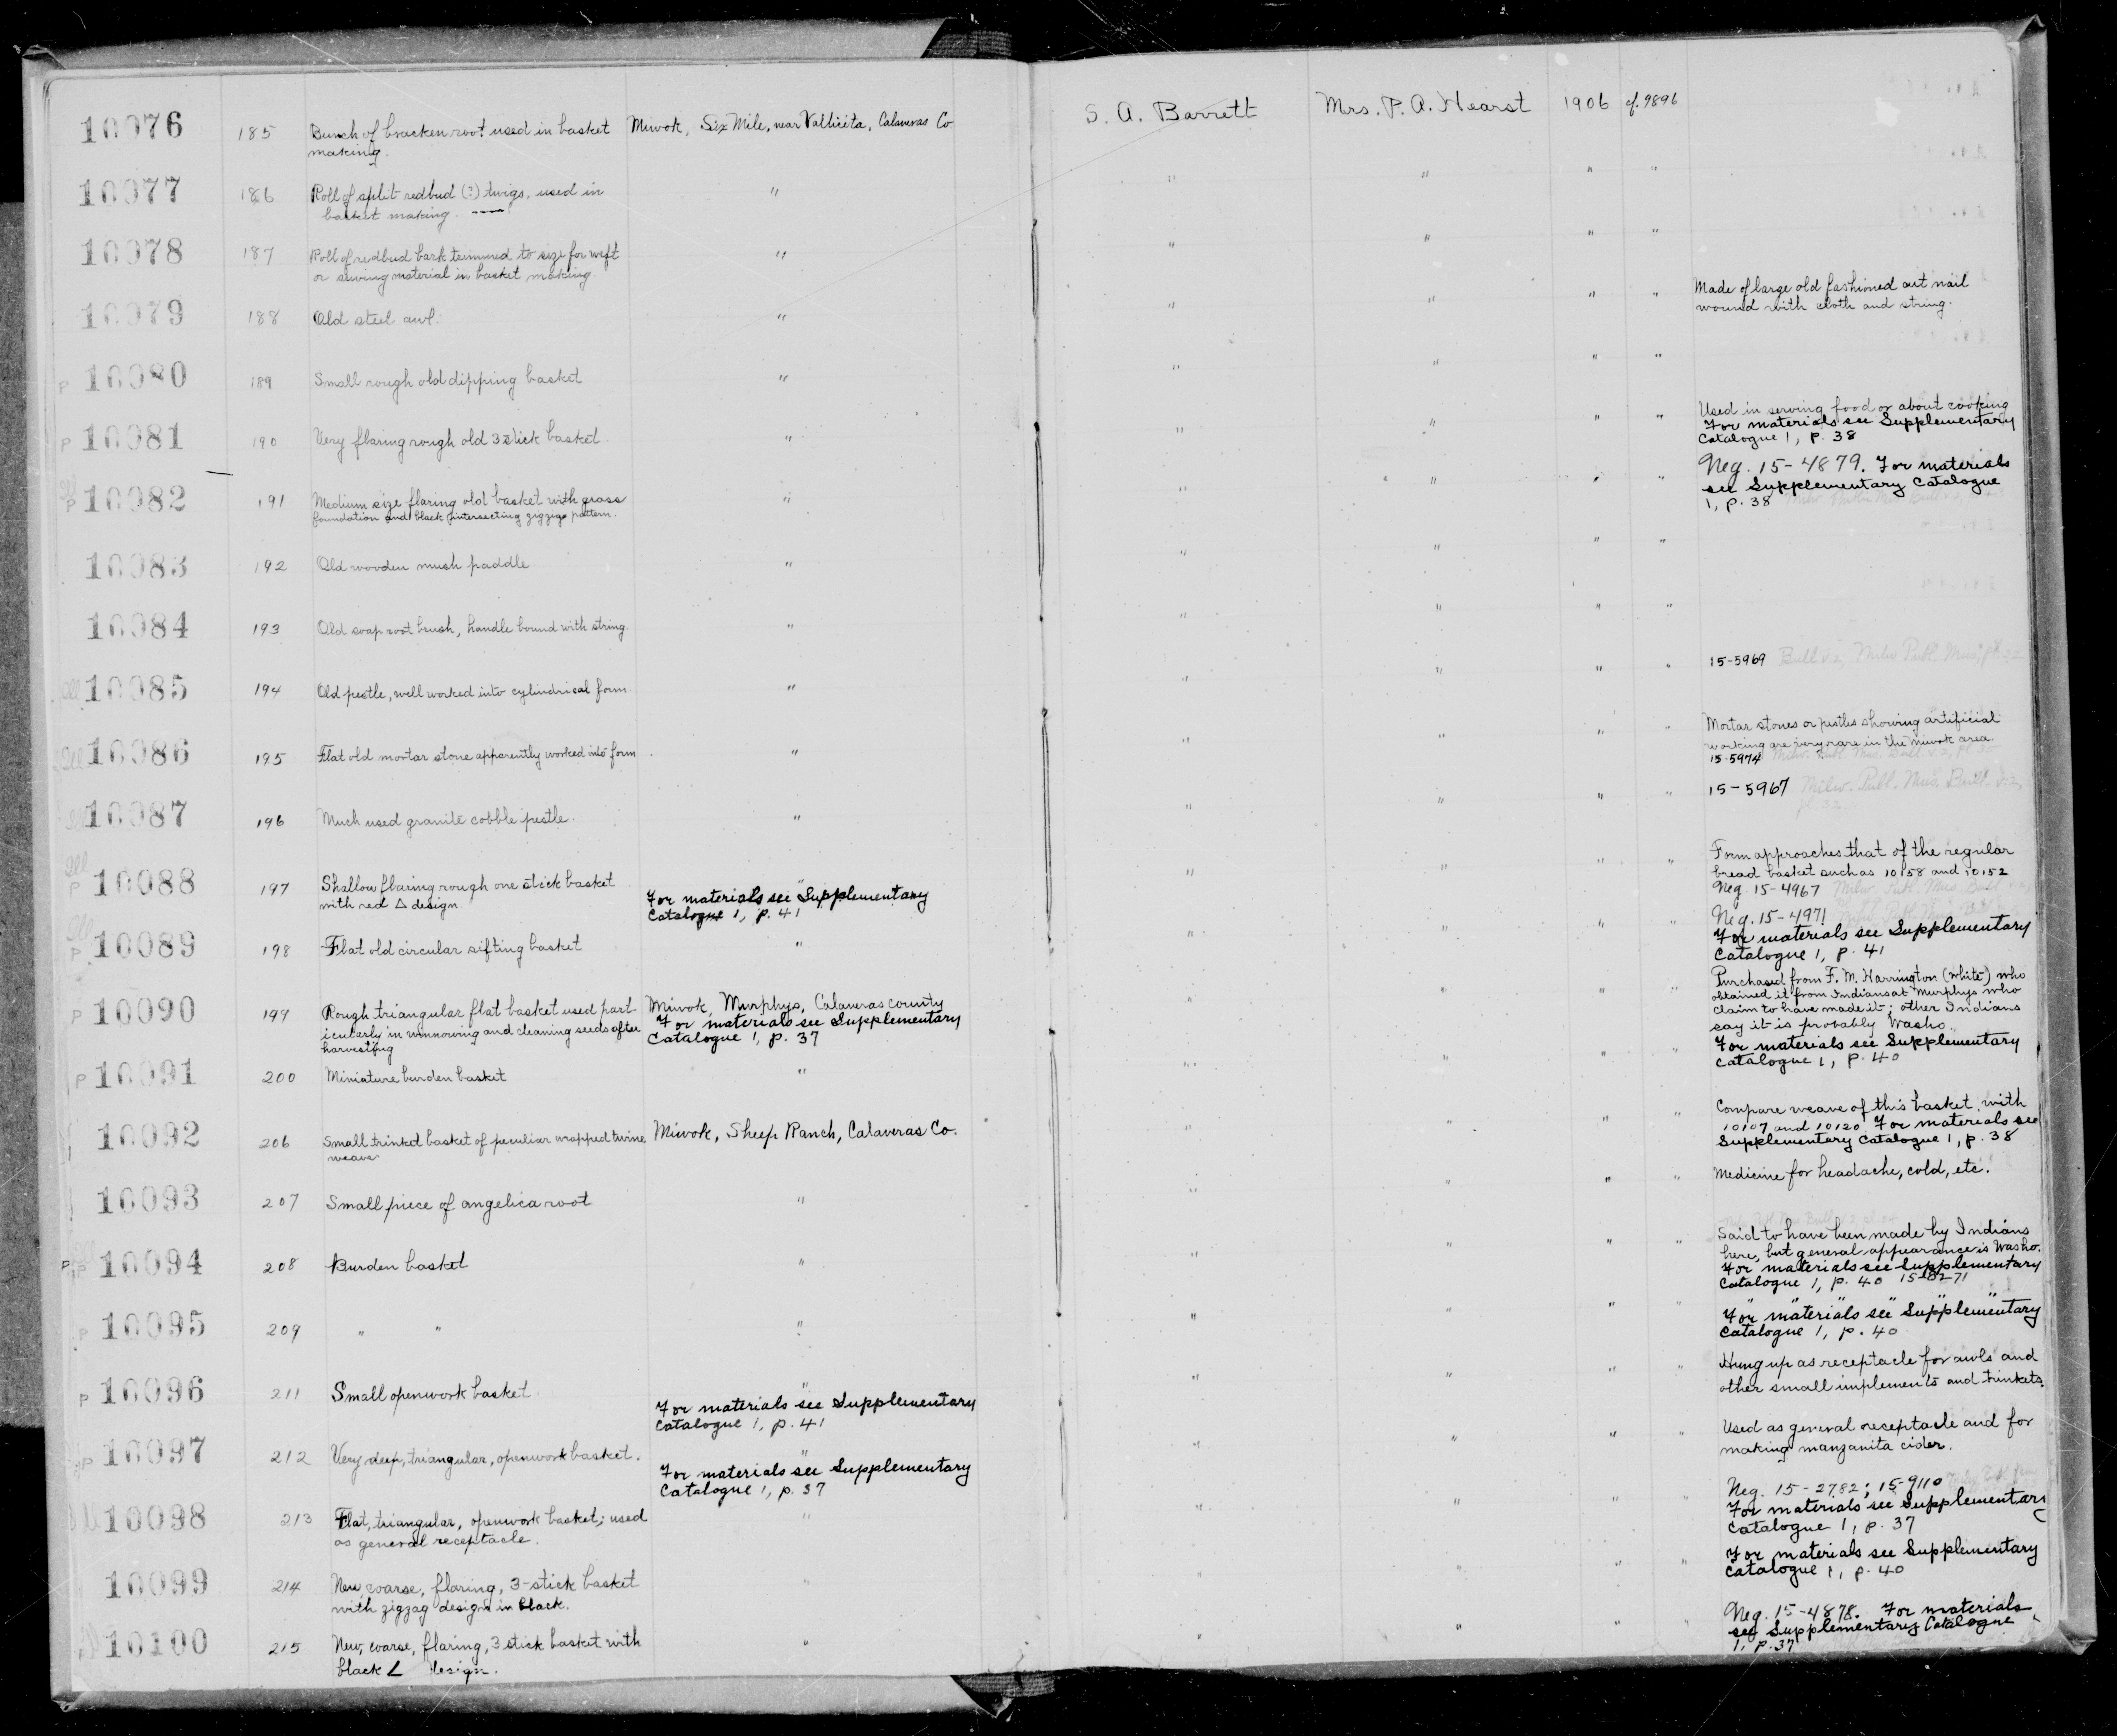 10076 185 Bunch of bracken root used in basket Miwok, Six Mile, near Vallicita, Calaveras Co. S. A. Barrett Mrs. P. A. Hearst 1906 cf. 9896
making.
10077 186 Roll of split redbud (?) twigs, used in " " " " "
basket making.
10078 187 Roll of redbud bark trimmed to size for weft " " " " "
or sewing material in basket making.
10079 188 Old steel awl. " " " " " Made of large old fashioned cut nail
wound with cloth and string.
P 10080 189 Small rough old dipping basket " " " " "
P 10081 190 Very flaring rough old 3 stick basket " " " " " Used in serving food or about cooking
For materials see Supplementary
Catalogue 1, p. 38
Ill P 10082 191 Medium size flaring old basket with grass " " " " " Neg. 15-4879. For materials
foundation and black intersecting zigzigs pattern. see Supplementary Catalogue
1, p. 38
10083 192 Old wooden mush paddle " " " " "
10084 193 Old soap root brush, handle bound with string. " " " " "
Ill 10085 194 Old pestle, well worked into cylindrical form " " " " " 15-5969 Bull v 2, Milw Publ. Mus,
Ill 10086 195 Flat old mortar stone apparently worked into form " " " " " Mortar stones or pestles showing artificial
working are very rare in the Miwok area.
15-5974
Ill 10087 196 Much used granite cobble pestle " " " " " 15-5967 Milw. Publ. Mus. Bull.
pl. 32
Ill P 10088 197 Shallow flaring rough one stick basket " " " " " Form approaches that of the regular
with red Δ design. For materials see Supplementary bread basket such as 10158 and 10152
Catalogue 1, p. 41 Neg 15-4967
Ill P 10089 198 Flat old circular sifting basket " " " " " Neg. 15-4971
For materials see Supplementary
Catalogue 1, p. 41
P 10090 199 Rough triangular flat basket used part- Miwok, Murphys, Calaveras county " " " " Purchased from F. M. Harrington (white) who
icularly in winnowing and cleaning seeds after For materials see Supplementary obtained it from Indians at Murphys who
harvesting Catalogue 1, p. 37 claim to have made it; other Indians
say it is probably Washo.
P 10091 200 Miniature burden basket " " " " " For materials see Supplementary
Catalogue 1, p. 40
10092 206 Small trinket basket of peculiar wrapped twine Miwok, Sheep Ranch, Calaveras Co. " " " " Compare weave of this basket with
weave 10107 and 10120 For materials see
Supplementary Catalogue 1, p. 38
10093 207 Small piece of angelica root " " " " " Medicine for headache, cold, etc.
P 10094 208 Burden basket " " " " " Said to have been made by Indians
here, but general appearance is Washo.
For materials see Supplementary
Catalogue 1, p. 40
P 10095 209 " " " " " " " " " " " "
For materials see Supplementary
Catalogue 1, p. 40
P 10096 211 Small openwork basket. " " " " " Hung up as receptacle for awls and
For materials see Supplementary other small implements and trinkets.
Catalogue 1, p. 41
P 10097 212 Very deep, triangular, openwork basket. " " " " " Used as general receptacle and for
For materials see Supplementary making manzanita cider.
Catalogue 1, p. 37
10098 213 Flat, triangular, openwork basket; used " " " " " Neg. 15-2782; 15-9110
as general receptacle. For materials see Supplementary
Catalogue 1, p. 37
10099 214 New coarse, flaring, 3-stick basket " " " " " For materials see Supplementary
with zigzag design in black. Catalogue 1, p. 40
10100 215 New, coarse, flaring, 3 stick basket with " " " " " Neg. 15-4878. For materials
black ∠ design. see Supplementary Catalogue
1, p. 37